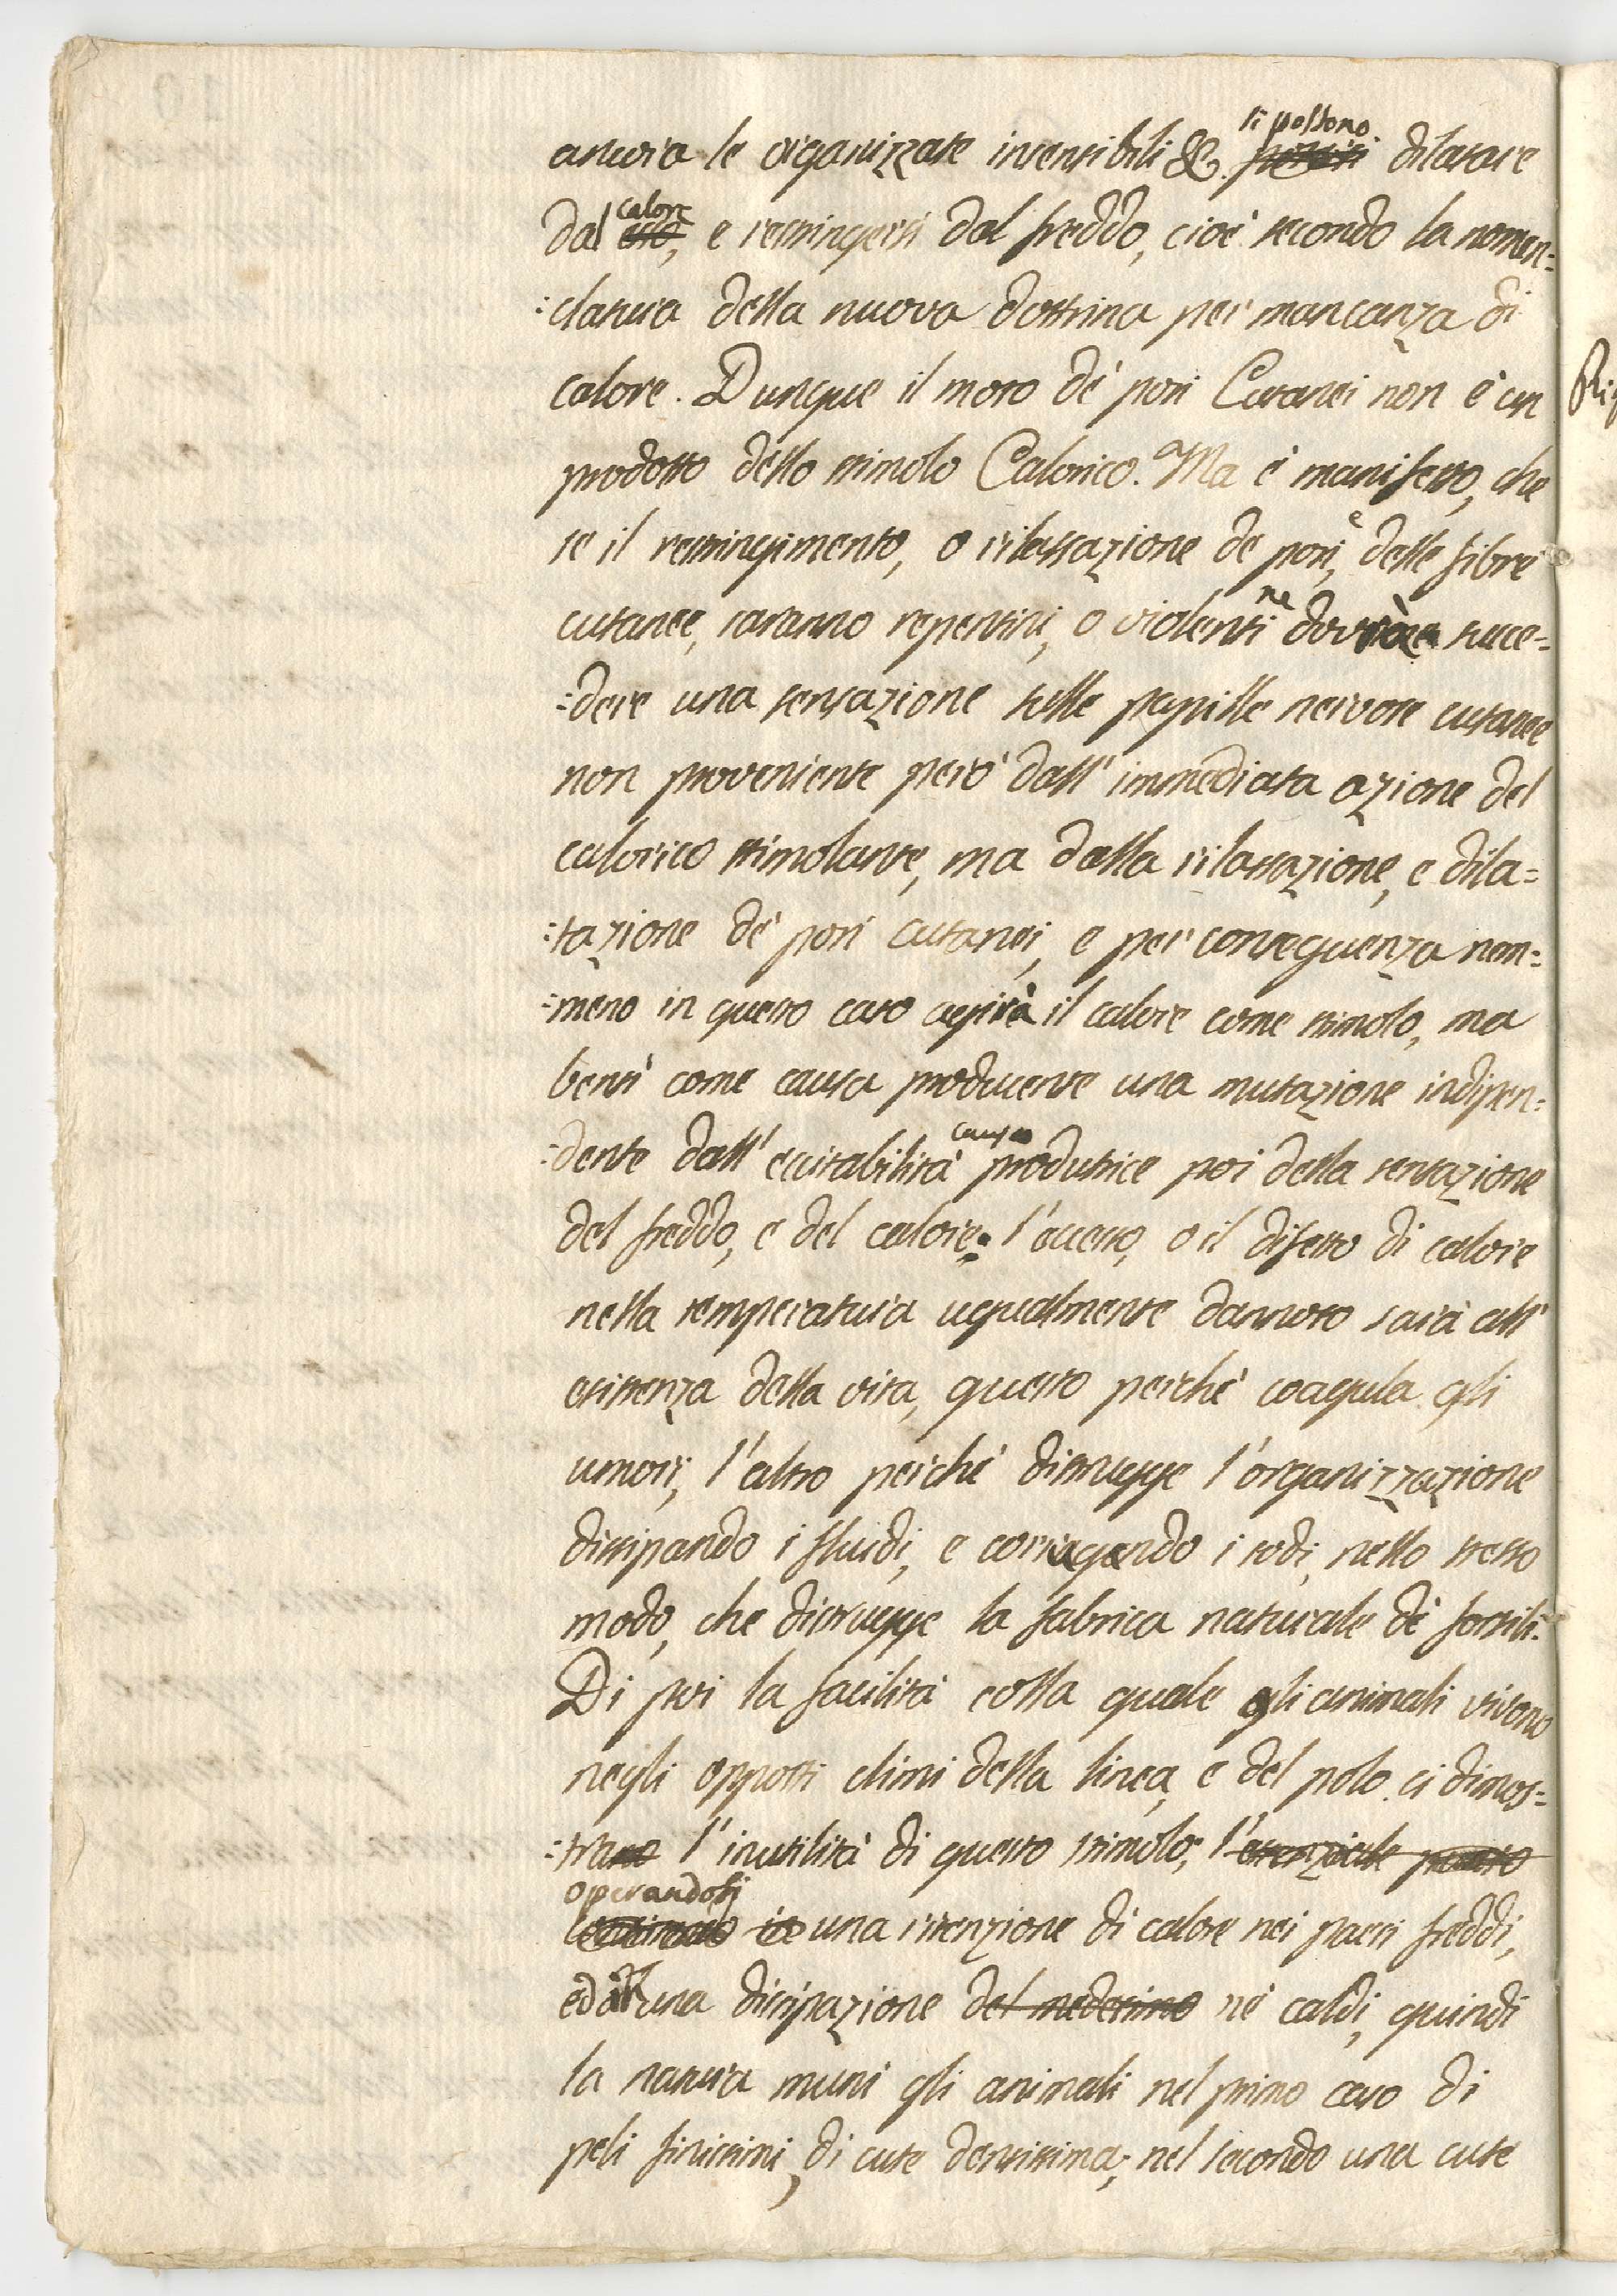 ancora le organizzate insensibili &c. si possono dilatare
dal calore, e restringersi dal freddo, cioè secondo la nomen=
:clatura della nuova dottrina per mancanza di
calore. Dunque il moto de' pori Cutanei non è un
prodotto dello stimolo Calorico. Ma è manifesto, che
se il restringimento, o rilassazione de pori, e delle fibre
cutanee, saranno repentini, o violenti ne dovrà succe=
:dere una sensazione sulle papille nervose cutanee
non proveniente però dall' immediata azione del
calorico stimolante, ma dalla rilassazione, e dila=
:tazione de' pori cutanei, e per conseguenza nem=
:meno in questo caso agirà il calore come stimolo, ma
bensì come causa producente una mutazione indipen=
:dente dall' eccitabilità causa produtrice poi della sensazione
del freddo, e del calore: l'eccesso, o il difetto di calore
nella temperatura ugualmente dannoso sarà all'
esistenza della vita, questo perchè coagula gli
umori, l'altro perchè distrugge l'organizzazione
dissipando i fluidi, e corrugando i sodi, nello stesso
modo, che distrugge la fabrica naturale de' fossili.
Di poi la facilità colla quale gli animali vivono
negli opposti climi della linea, e del polo ci dimos=
:trano l'inutilità di questo stimolo, l'essenziale
operandosi una ritenzione di calore nei paesi freddi,
ed una dissipazione del medesimo ne' caldi, quindi
la natura munì gli animali nel primo caso di
peli finissimi, di cute densissima; nel secondo una cute
Ri